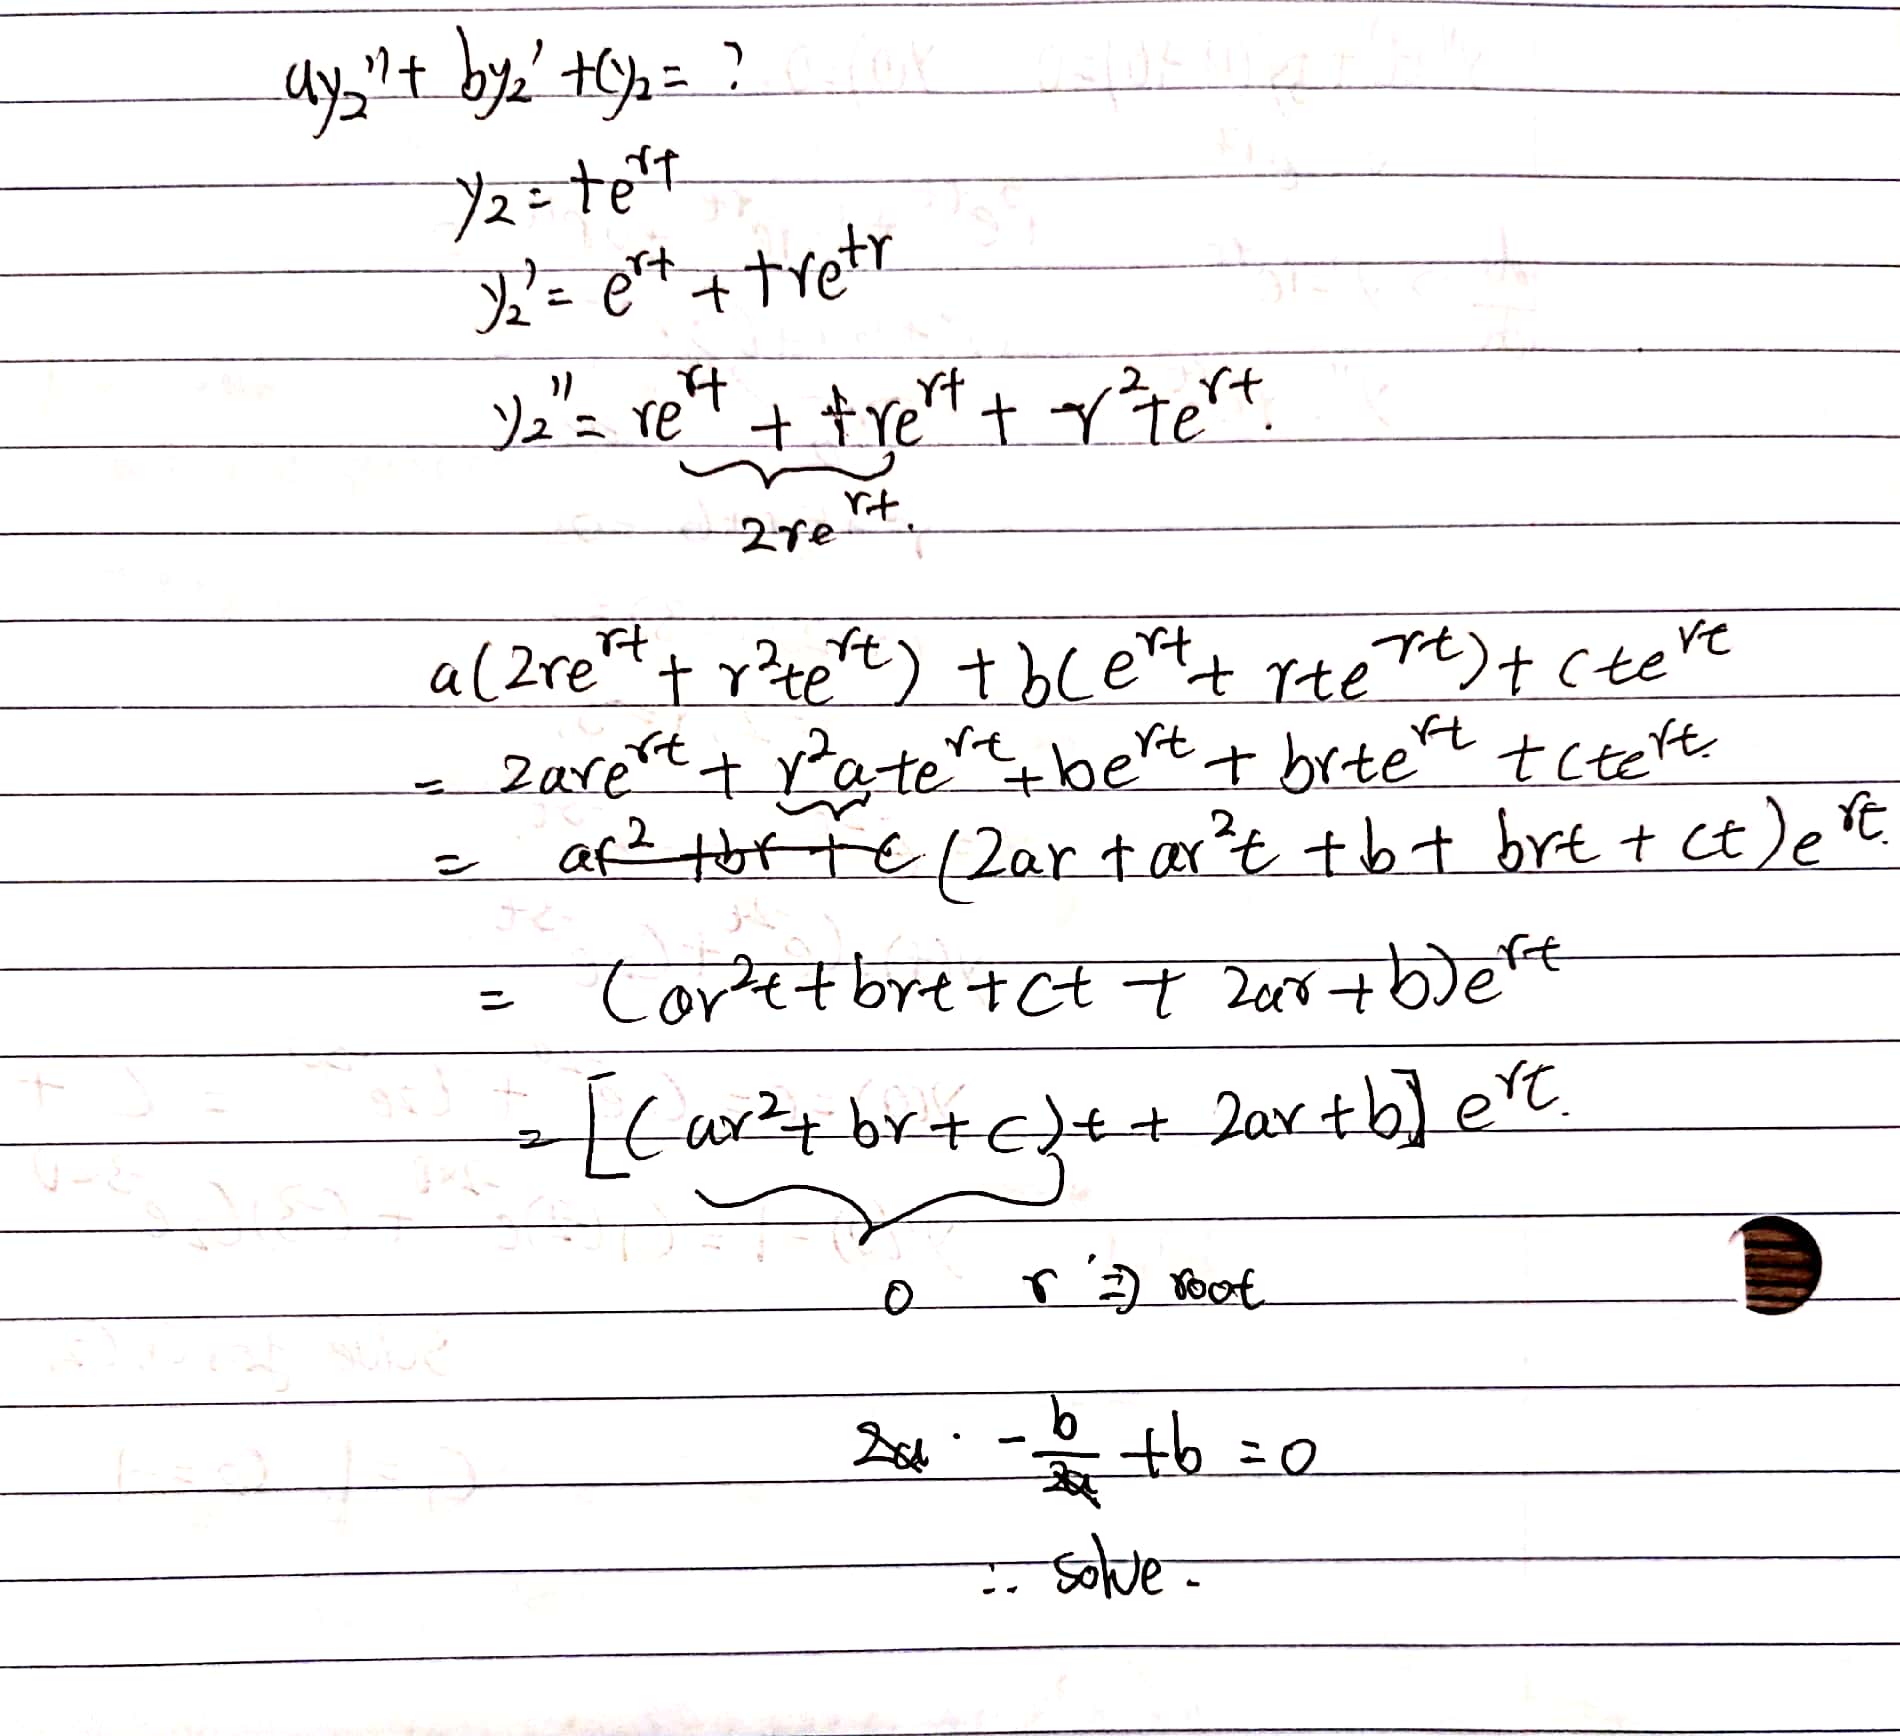 ay₂'' + by₂' + cy₂ = ?
y₂ = te^rt
y₂' = e^rt + tre^tr
y₂'' = re^rt + re^rt + r²te^rt.
2re^rt.
a(2re^rt + r²te^rt) + b(e^rt + rte^rt) + cte^rt
= 2are^rt + r²ate^rt + be^rt + brte^rt + cte^rt.
= ar² + br + c (2ar + ar²t + b + brt + ct)e^rt.
= (ar²t + brt + ct + 2ar + b)e^rt
= [(ar² + br + c)t + 2ar + b] e^rt.
0 r ⇒ root
2a · -b/2a + b = 0
∴ solve.